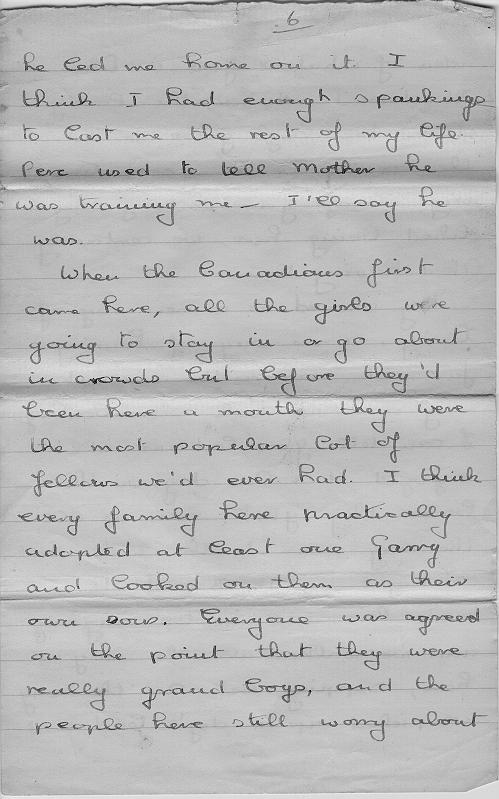 6
he led me home on it. I
think I had enough spankings
to last me the rest of my life.
Perc used to tell mother he
was training me — I'll say he
was.
When the Canadians first
came here, all the girls were
going to stay in or go about
in crowds but before they'd
been here a month they were
the most popular lot of
fellows we'd ever had. I think
every family here practically
adopted at least one Garry
and looked on them as their
own sons. Everyone was agreed
on the point that they were
really grand boys, and the
people here still worry about